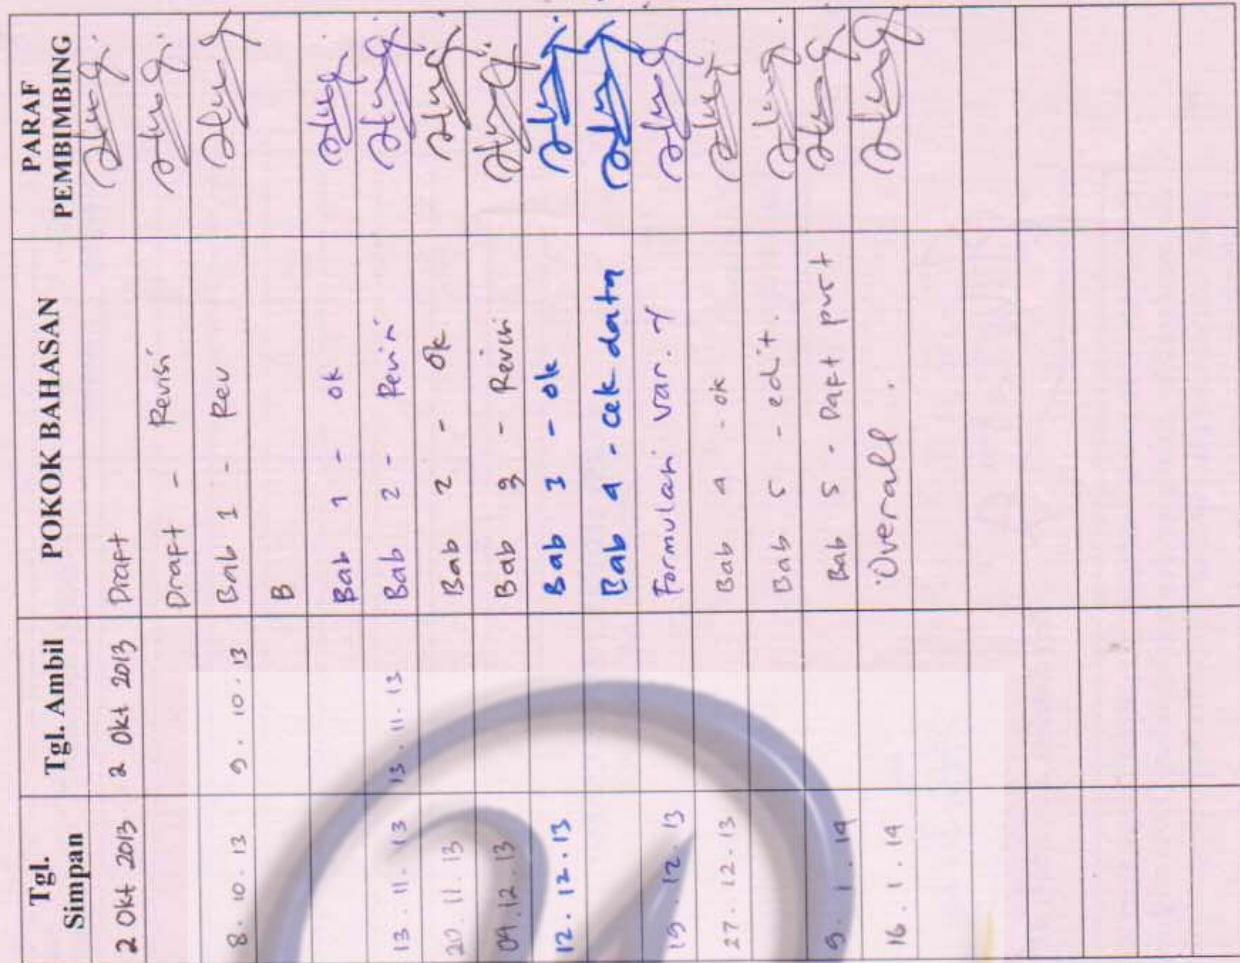 Tgl. Simpan Tgl. Ambil POKOK BAHASAN PARAF PEMBIMBING
2 Okt 2013 2 Okt 2013 Draft
Draft - Revisi
8. 10. 13 9. 10. 13 Bab 1 - Rev
B
Bab 1 - ok
13. 11. 13 13. 11. 13 Bab 2 - Revisi
20. 11. 13 Bab 2 - ok
04. 12. 13 Bab 3 - Revisi
12. 12. 13 Bab 3 - ok
Bab 4 - cek data
19. 12. 13 Formulasi var. Y
27. 12. 13 Bab 4 - ok
Bab 5 - edit.
9. 1. 14 Bab 5 - Daft pust
16. 1. 14 Overall.